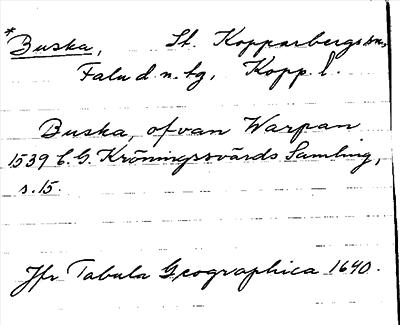 *Buska, St. Kopparbergs sn,
Falu d. n. tg, Kopp. l.
Buska, ofvan Warpan
1539 C. G. Kröningssvärds Samling,
s. 15.
Jfr Tabula Geographica 1640.